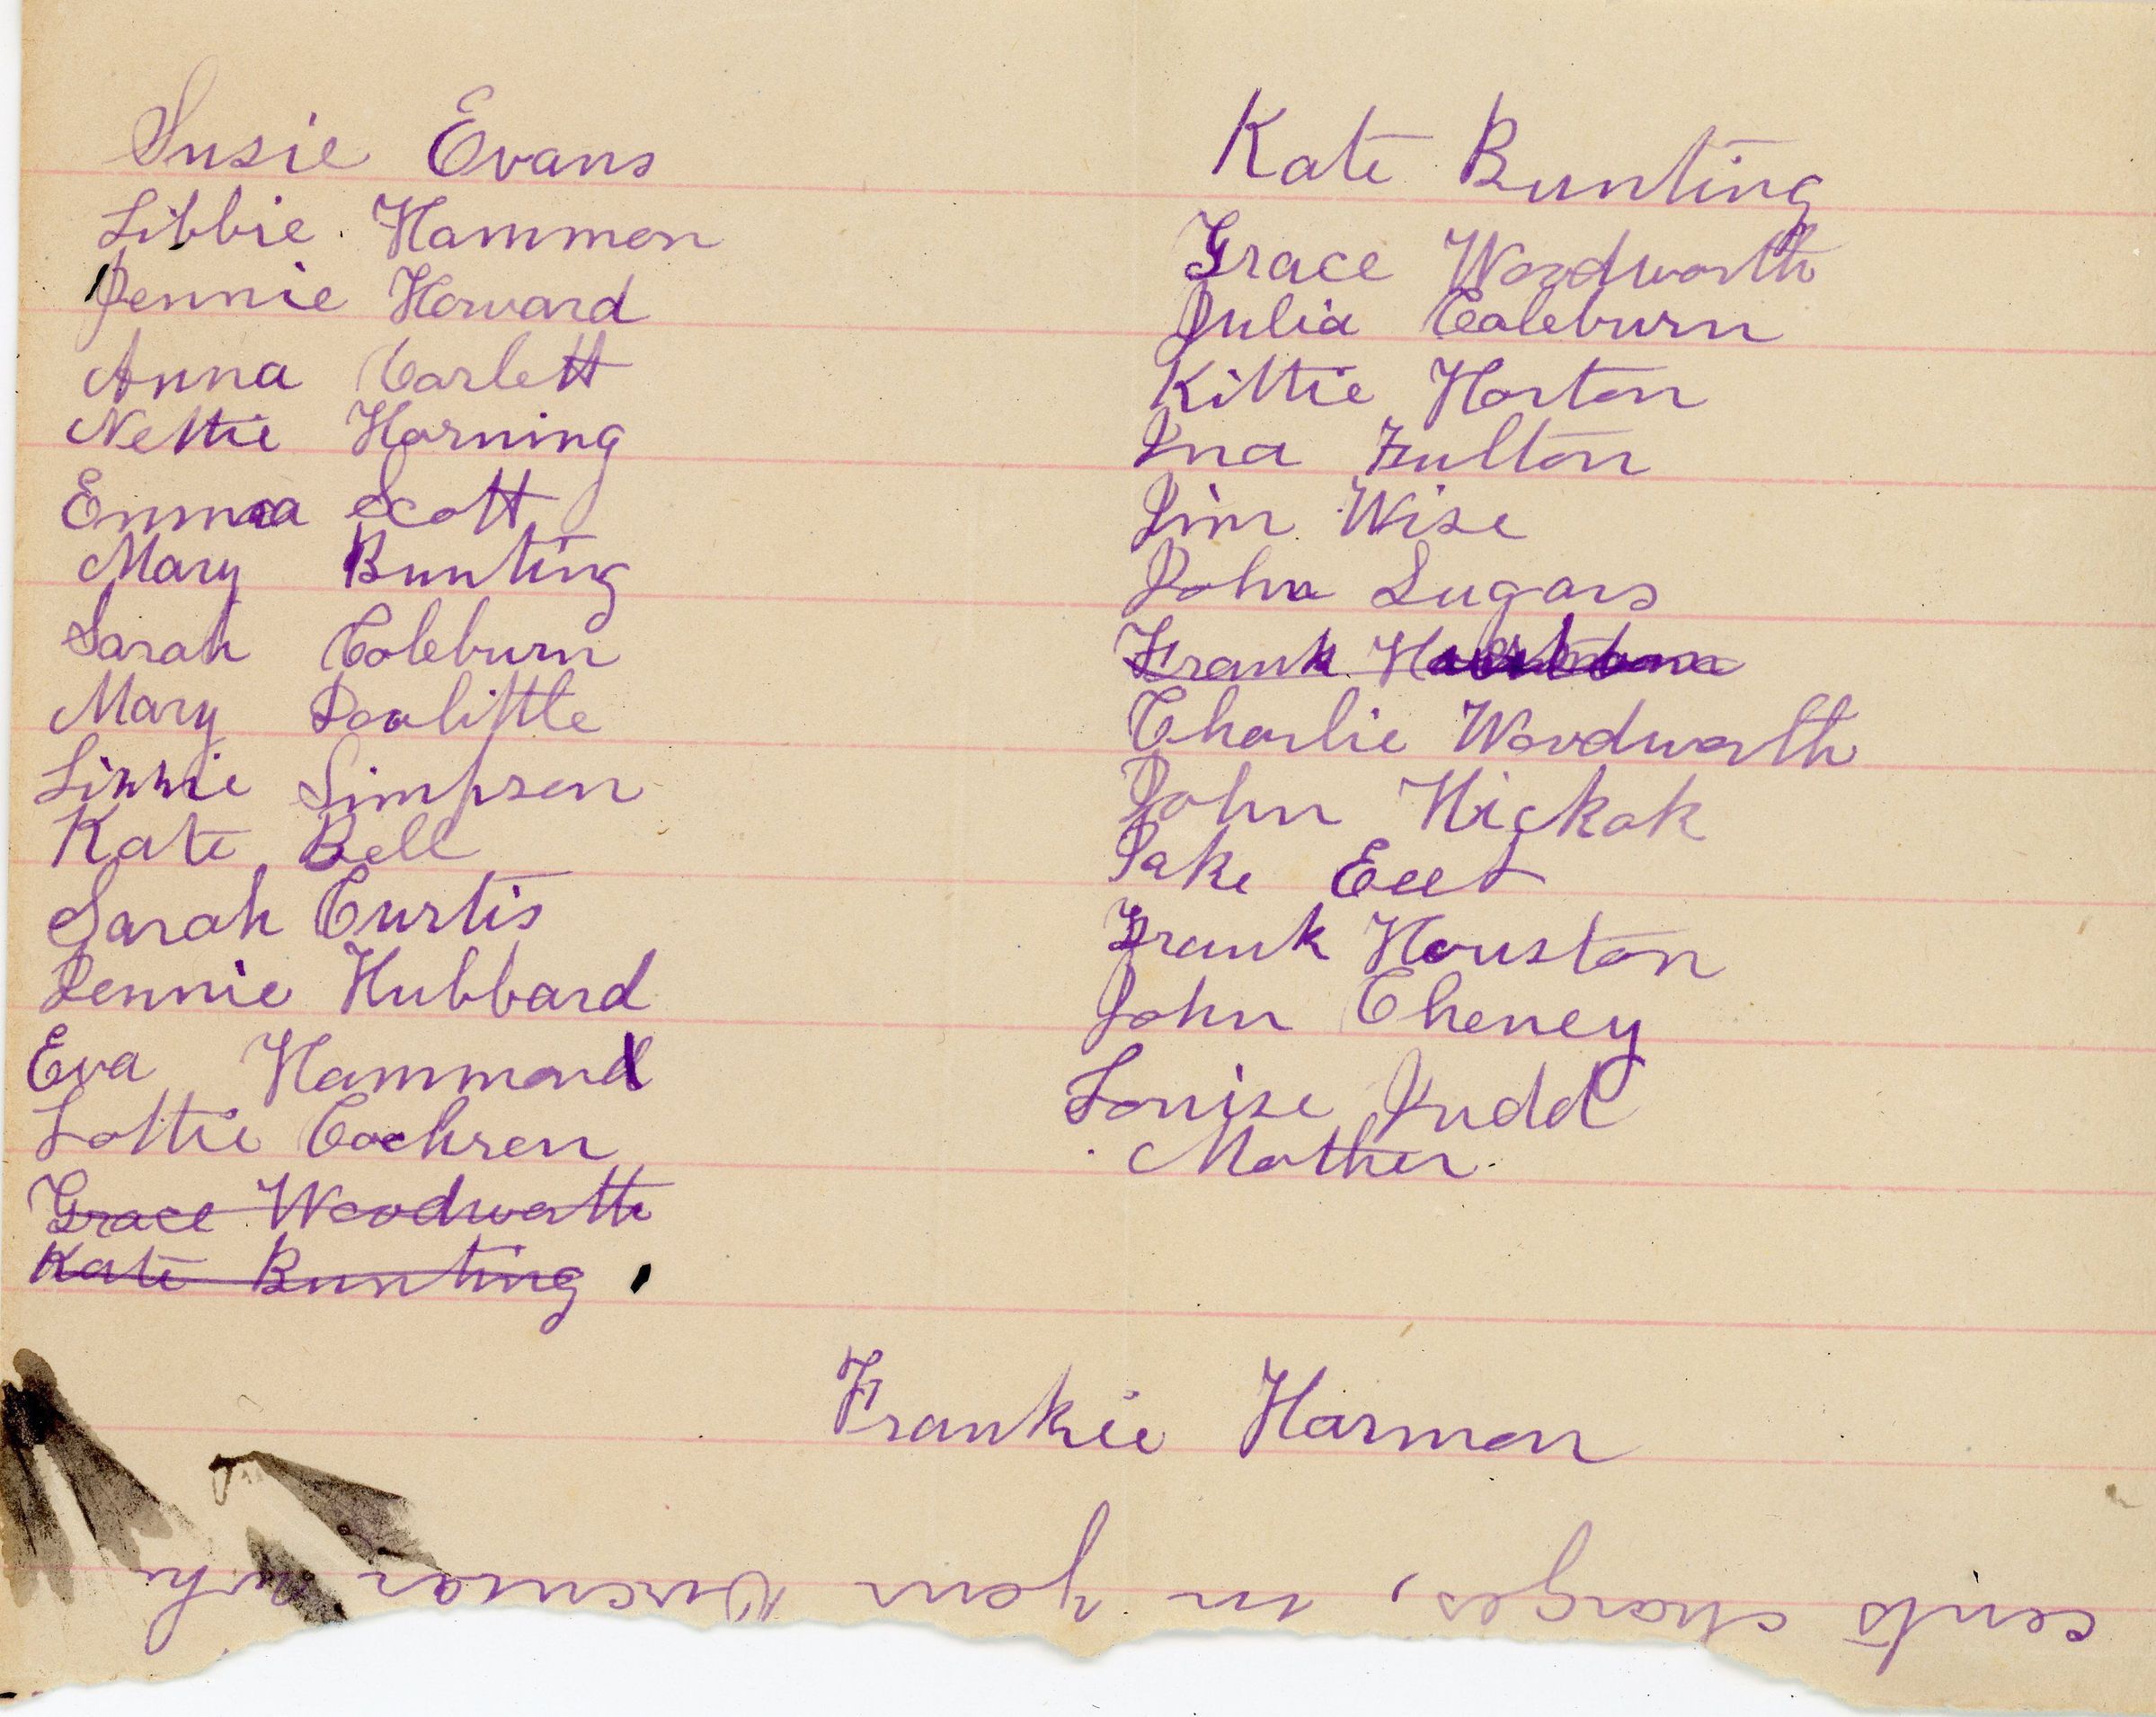 Susie Evans
Libbie Hammon
Jennie Howard
Anna Carlett
Nettie Horning
Emma Scott
Mary Bunting
Sarah Coleburn
Mary Doolittle
Linnie Simpson
Kate Bell
Sarah Curtis
Jennie Hubbard
Eva Hammond
Lottie Cochren
Grace Woodworth
Kate Bunting
Kate Bunting
Grace Woodworth
Julia Coleburn
Kittie Horton
Ina Fulton
Jim Wise
John Sugars
Frank
Charlie Woodworth
John Hickok
Jake
Frank Houston
John Cheney
Louise Judd
Mother
Frankie Harmon
cents charges, in your